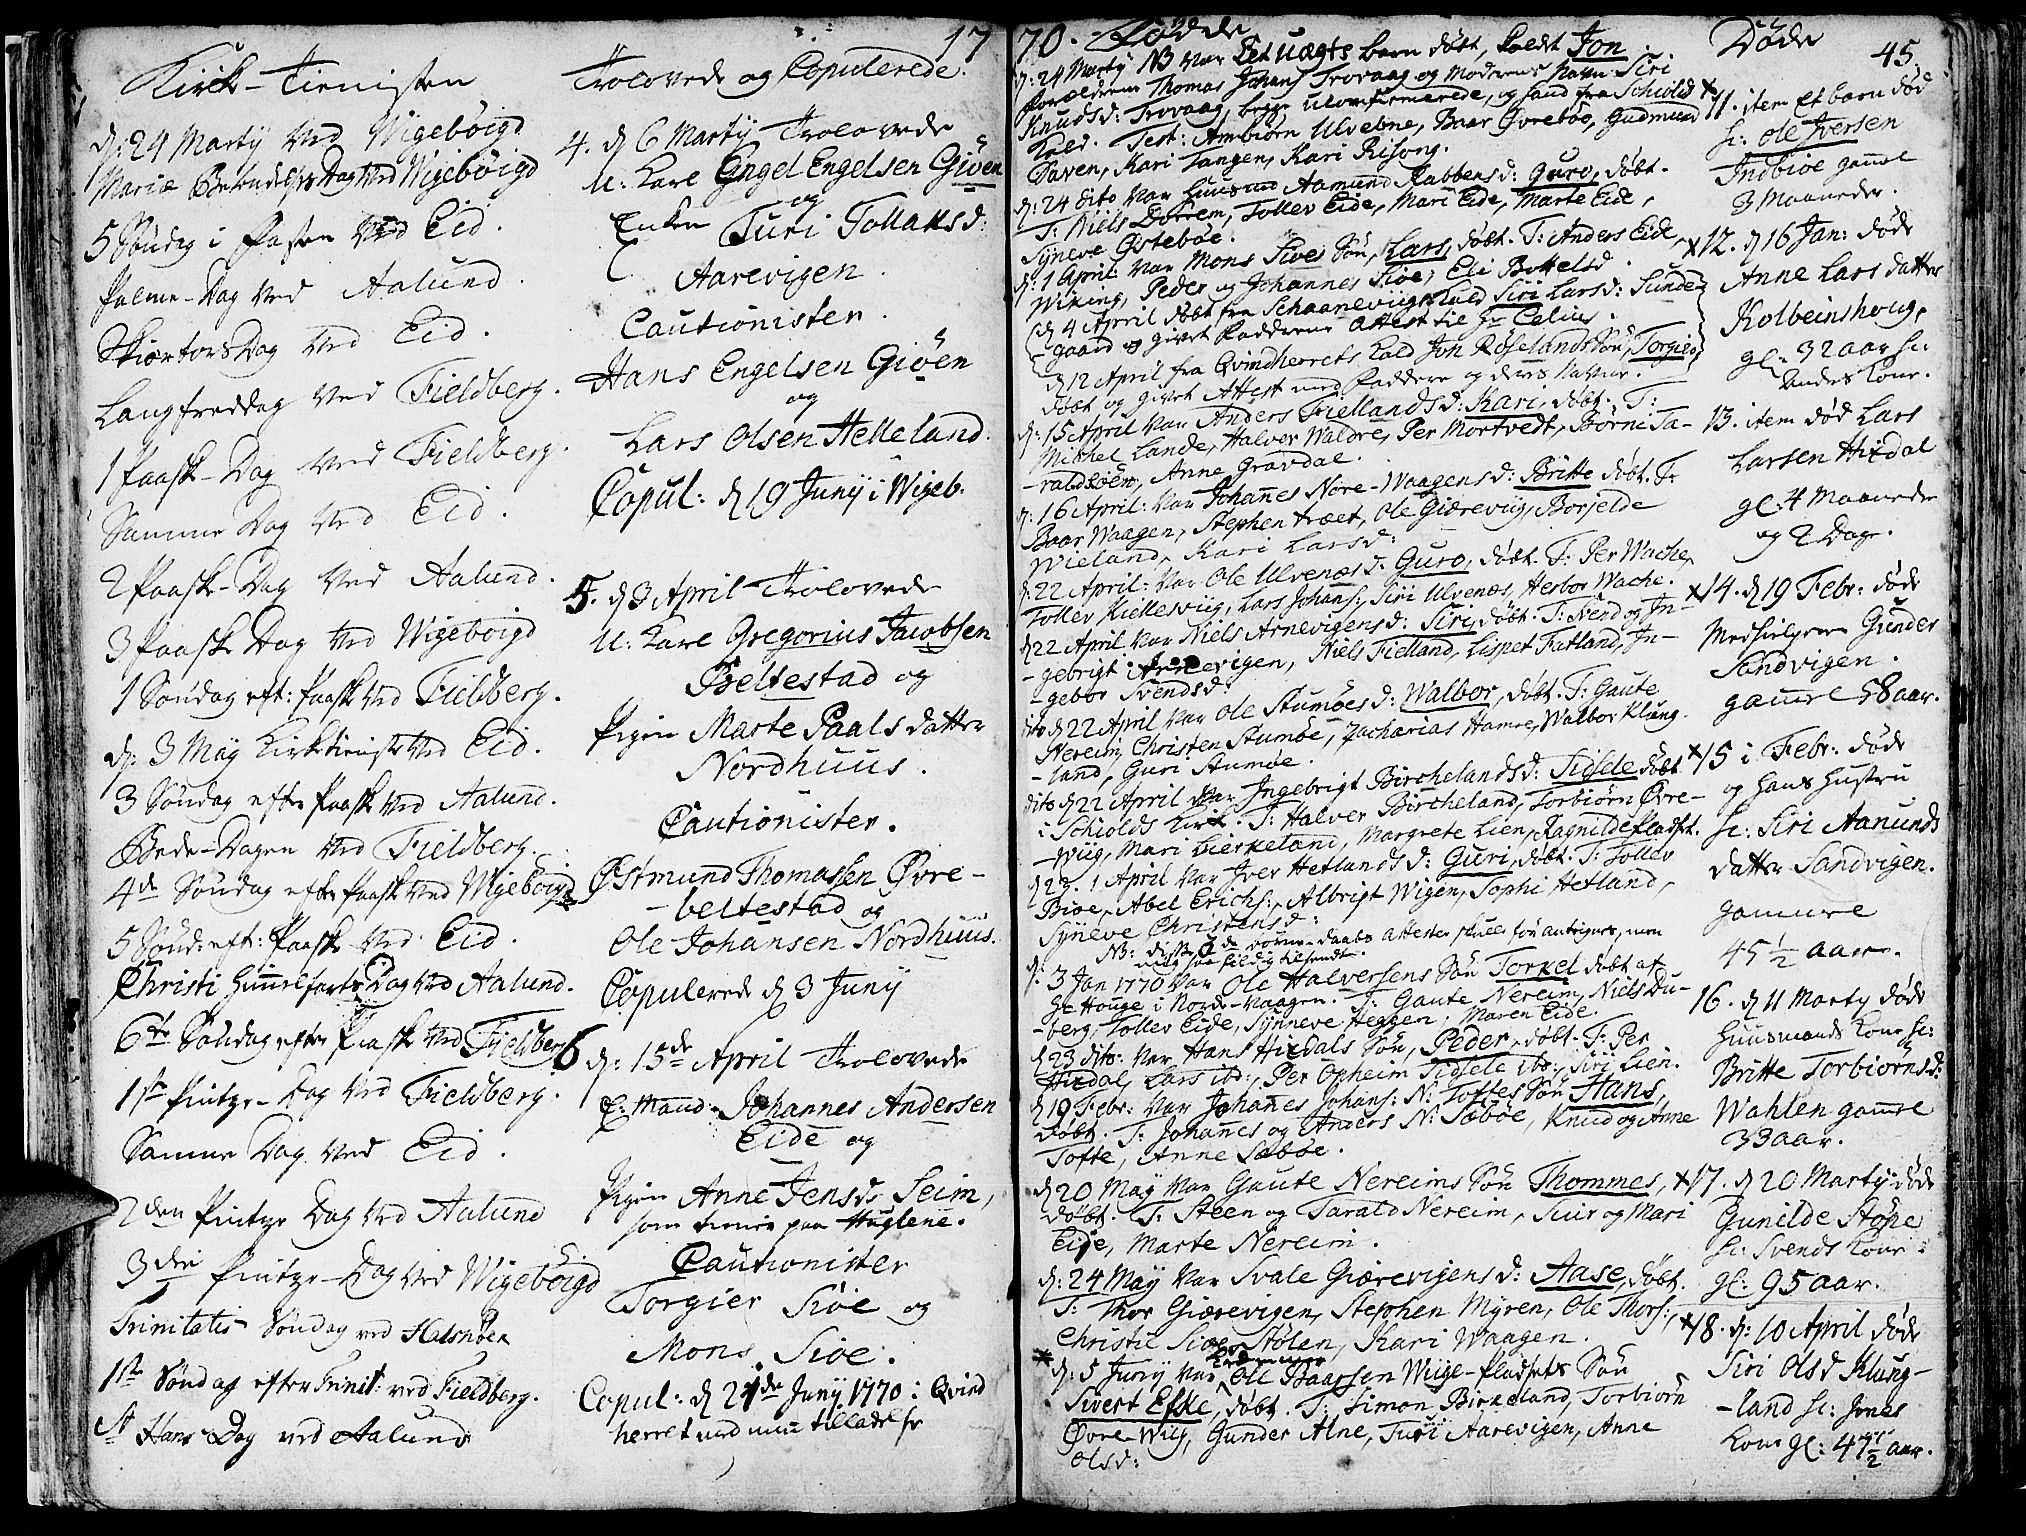 1770.
45.
Kirck-Tienisten
d: 24 Marty ved Wigebøigd
Mariæ Bebudelses Dag ved Wigebøigd
5 Søndag i Fasten ved Eid.
Palme-Dag ved Aalund.
Skiærtors Dag ved Eid.
Langfredag ved Fieldberg.
1 Paask-Dag ved Fieldberg.
Samme Dag ved Eid.
2 Paask-Dag ved Aalund.
3 Paask Dag ved Wigebøigd
1 Søndag eft: Paask ved Fieldberg.
d: 3 May Kirktieniste ved Eid.
3 Søndag efter Paask ved Aalund.
Bede-Dagen ved Fieldberg.
4de Søndag efter Paask ved Wigebøigd
5 Sønd: eft: Paask ved Eid.
Christi Himmelfarts Dag ved Aalund.
6te Søndag efter Paask ved Fieldberg
1ste Pintze-Dag ved Fieldberg.
Samme Dag ved Eid.
2den Pintze Dag ved Aalund
3die Pintze-Dag ved Wigebøigd
Trinitatis Søndag ved Halsnøen
1ste Søndag efter Trinit: ved Fieldberg.
St Hans Dag ved Aalund
Trolovede og Copulerede.
4. d 6 Marty Trolovede
U: Karl Engel Engelsen Giøen
og
Enken Turi Tollaks d:
Aarevigen.
Cautionister.
Hans Engelsen Giøen
og
Lars Olsen Helleland.
Copul: d 19 Junÿ i Wigeb.
5. d 3 April Trolovede
U: Karl Gregorius Jacobsen
Beltestad og
Pigen Marte Paals datter
Nordhuus.
Cautionister.
Østmund Thomassen Øvre-
-beltestad og
Ole Johansen Nordhuus.
Copulerede d 3 Junÿ
6 d: 15de April Trolovede
E: Mand Johannes Andersen
Eide og
Pigen Anne Jensd: Seim,
som tiener paa Huglene.
Cautionister
Torgier Siøe og
Mons Siøe.
Copul: d 21de Junÿ 1770 i Qvind
herret med min tilladelse
Fødde
d: 24 Marty NB var Et Uægte barn døbt, kaldt Jon
forældrene Thomas Johans: Trovaag og Moderens Navn Siri
Knudsd: Trovaag, begge Uconfirmerede, og fra Schiold
Kald. Test: Ambiørn Ulvebne, Baar Øvrebøe, Gudmund
Saven, Kari Tangen, Kari Risøng.
d: 24 dito var Huusmd Aamund Rabbens d: Guro, døbt.
T: Niels Dørrem, Tollev Eide, Mari Eide, Marte Eide,
Syneve Østebøe.
d: 1 April: var Mons Siøes Søn, Lars, døbt. T: Anders Eide,
Wiking, Peder og Johannes Siøe, Eli Bottelsd.
d 4 April døbt fra Schaanevigs Kald Siri Larsd: Sunde
gaard og givet Fadderne Attest til Hr Celius.
d 12 April fra Qvindherrets Kald Jon Røselands Søn, Torgier
døbt og givet Attest med Faddere og deres Navne.
d: 15 April var Anders Fiellands d: Kari, døbt. T:
Mikkel Lande, Halver Waldre, Per Mortvedt, Børni Ta-
-raldsøen, Anne Gravdal.
d: 16 April: var Johannes Nore-Waagens d: Britte døbt. T:
Baar Waagen, Stephen træet, Ole Giæreviig, Borjelde
Wieland, Kari Larsd:
d: 22 April: var Ole Ulvenæs d: Guro, døbt. T: Per Wache,
Tollev Kiellesviig, Lars Johans:, Siri Ulvenæs, Herbor Wache.
d 22 April var Niels Arnevigens d: Siri, døbt. T: Svend og In-
-gebrigt Arnevigen, Niels Fielland, Lispet Fatland, In-
-gebor Svendsd:
dito d 22 April var Ole Stumøes d: Walbor, døbt. T: Gaute
Nereim, Christen Stumøe, Zacharias Hamre, Walbor Klung-
-land, Guri Stumøe.
dito d 22 April var Ingebrigt Birchelands d: Sidsele døbt
i Schiolds Kirk. T: Halver Bircheland, Torbiørn Øvre-
-Wiig, Mari Birkeland, Margrete Lien, Ragnilde Pladset.
d 23. 1 April var Iver Hetlands d: Guri, døbt. T: Tollev
Biøe, Abel Erichs:, Albrigt Wigen, Sophi Hetland,
Syneve Christensd:
NB: disse 2de børne-daabs attester skulle før antegnes, men
mig saa sildig tilsendt.
d: 3 Jan 1770 var Ole Halversens Søn Torkel døbt af
Hr Houge i Norde-Vaagen. T: Gaute Nereim, Niels Du-
-berg, Tollev Eide, Synneve Heggen, Maren Eide.
d 23 dito: var Hans Hixdals Søn, Peder, døbt. T: Per
Hixdal, Lars ibd:, Per Opheim Sidsele ibd:, Siri Lien.
d 19 Febr: var Johannes Johans: N: Toftes Søn Hans,
døbt. T: Johannes og Anders N: Søbøe, Knud og Anne
Tofte, Anne Søbøe.
d 20 May var Gaute Nereims Søn Thommes,
døbt. T: Steen og Tarald Nereim, Siur og Mari
Eide, Marte Nereim.
d: 24 May var Svale Giærevigens d: Aase, døbt.
T: Thor Giærevigen, Stephen Myren, Ole Thors:,
Christi Siøe Stølen, Kari Waagen.
d: 5 Junÿ var Ole Baarsen Wiige-Pladsets Søn
Sivert Efke, døbt. T: Simon Birkeland, Torbiørn
Øvre-Wiig, Gunder Alne, Turi Aarevigen, Anne
Olsd:
Døde
11. item et barn død
sc: Ole Iversen
Indbiøe gamel
3 Maaneder
12. d 16 Jan: døde
Anne Lars datter
Kolbeinshoug,
gl: 32 aar sc:
Anders Kone.
13. item død Lars
Larsen Hixdal
gl: 4 Maaneder
og 2 Dage.
14. d 19 Febr: døde
Medhielperen Gunder
Sandvigen.
gamel 58 aar.
15 i Febr: døde
og hans hustru
sc: Siri Aanunds
datter Sandvigen.
gamle
45 1/2 aar.
16. d 11 Marty døde
Huusmands Kone sc:
Britte Torbiørnsd:
Wahlen gamle
33 aar.
17. d 20 Marty døde
Gunilde Støpe
sc: Svends Kone
gl: 95 aar.
18. d: 10 April døde
Siri Olsd Klung-
-land sc: Jones
Kone gl: 47 1/2 aar.